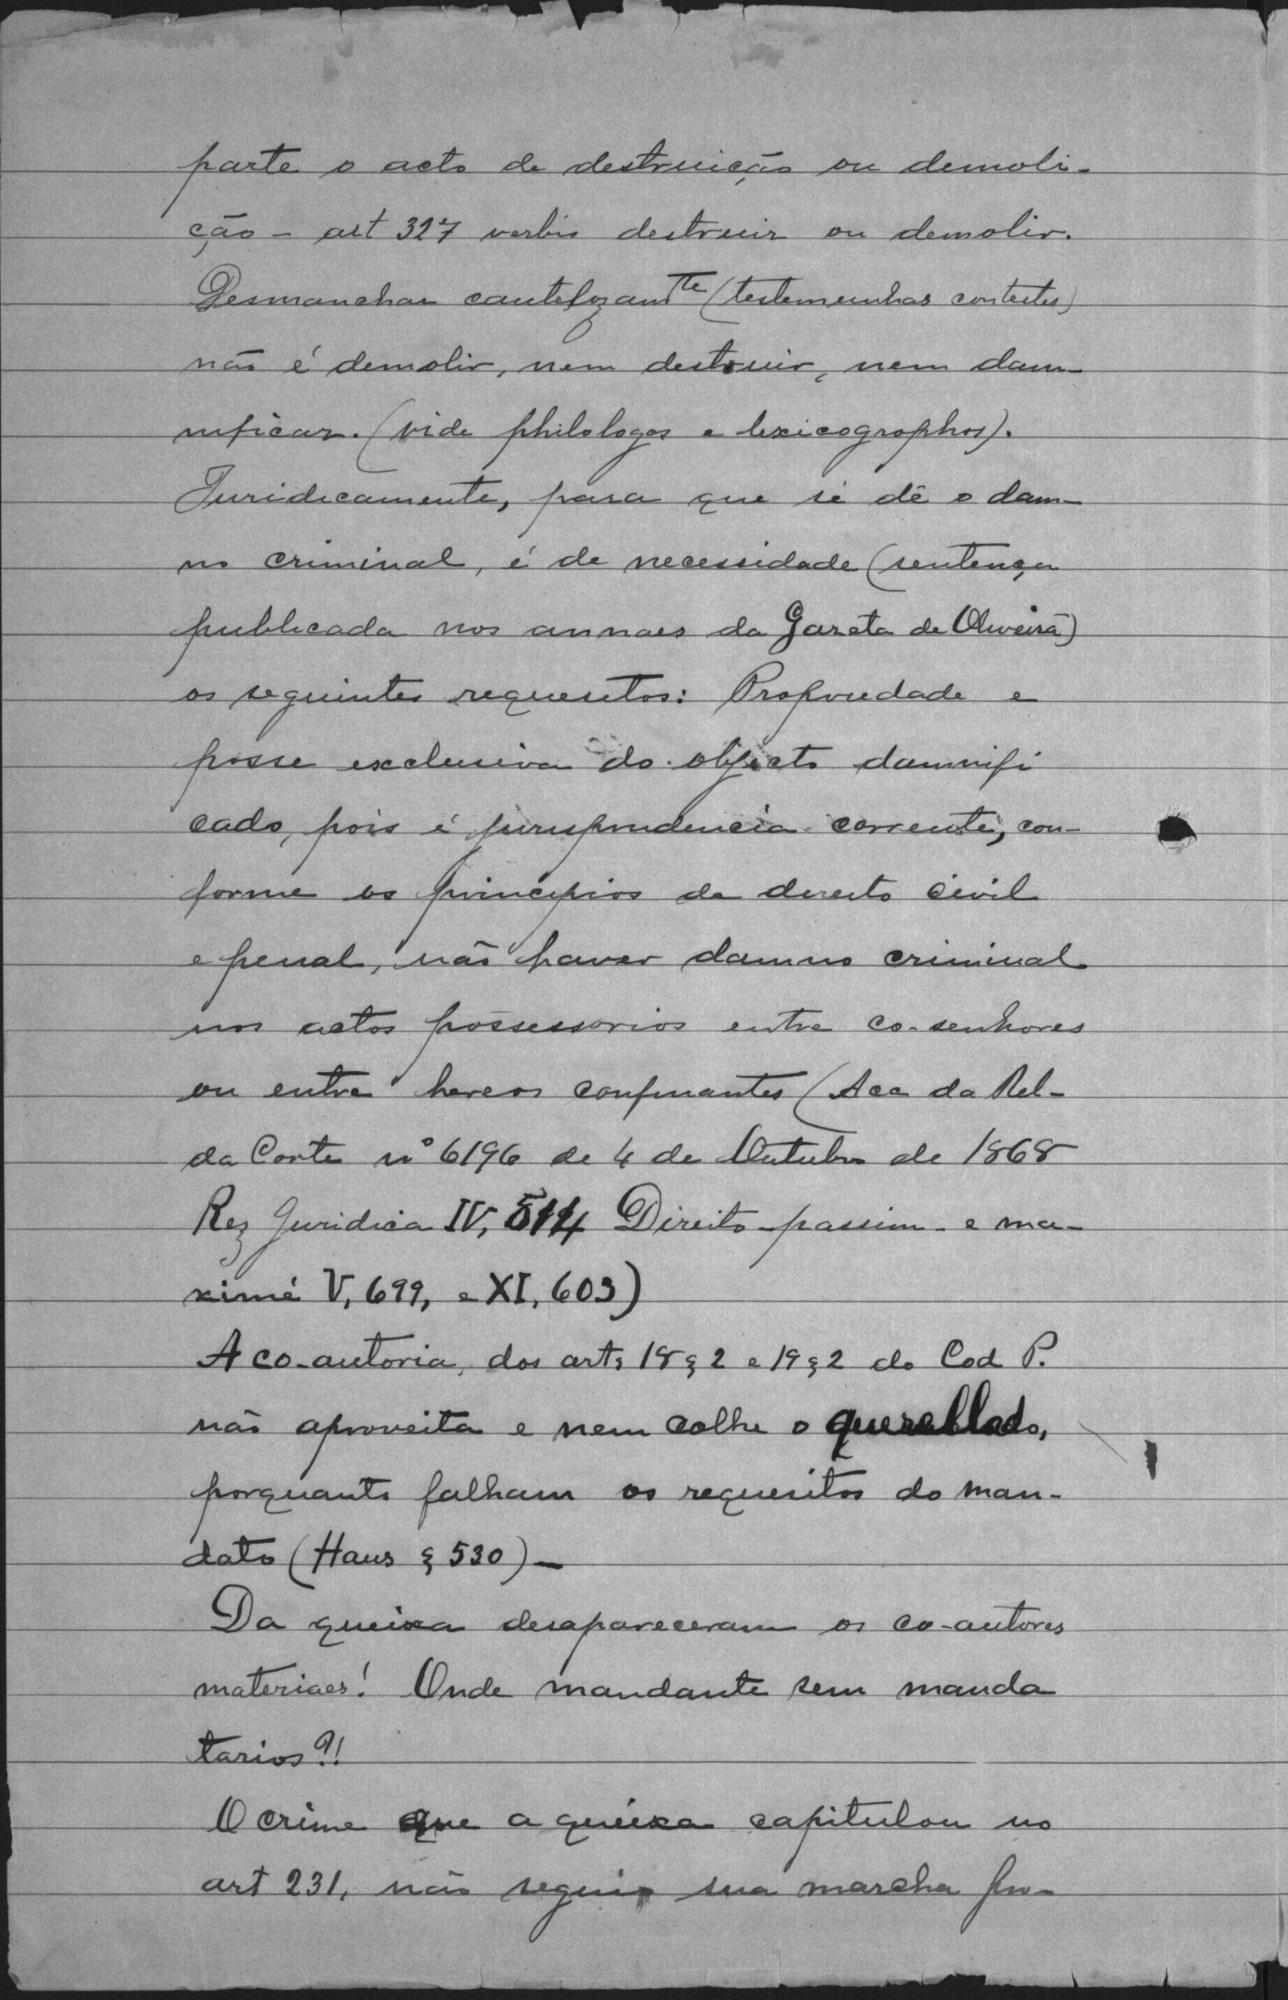 parte o acto de destruição ou demoli-
ção - art 327 verbis destruir ou demolir.
Desmanchar cautelozamte (testemunhas contestes)
não é demolir, nem destruir, nem dam-
nificar. (vide philologos e lexicographos).
Juridicamente, para que se dê o dam-
no criminal, é de necessidade (sentença
publicada nos annaes da Gazeta de Oliveira)
os seguintes requesitos: Propriedade e
posse exclusiva do objecto damnifi
cado, pois é jurisprudencia corrente, con-
forme os principios de direito civil
e penal, não haver damno criminal
nos actos possessorios entre co-senhores
ou entre hereos confinantes (Acc da Rel-
da Corte nº 6196 de 4 de Outubro de 1868
Rez Juridica IV, 514 Direito - passim - e ma-
ximé V, 699, e XI, 603)
A co-autoria, dos arts 18 § 2 e 19 § 2 do Cod P.
não aproveita e nem colhe o querellado,
porquanto falham os requesitos do man-
dato (Haus § 530) -
Da queixa desapareceram os co-autores
materiaes! Onde mandante sem manda
tarios?!
O crime que a queixa capitulou no
art 231, não seguio sua marcha pro-